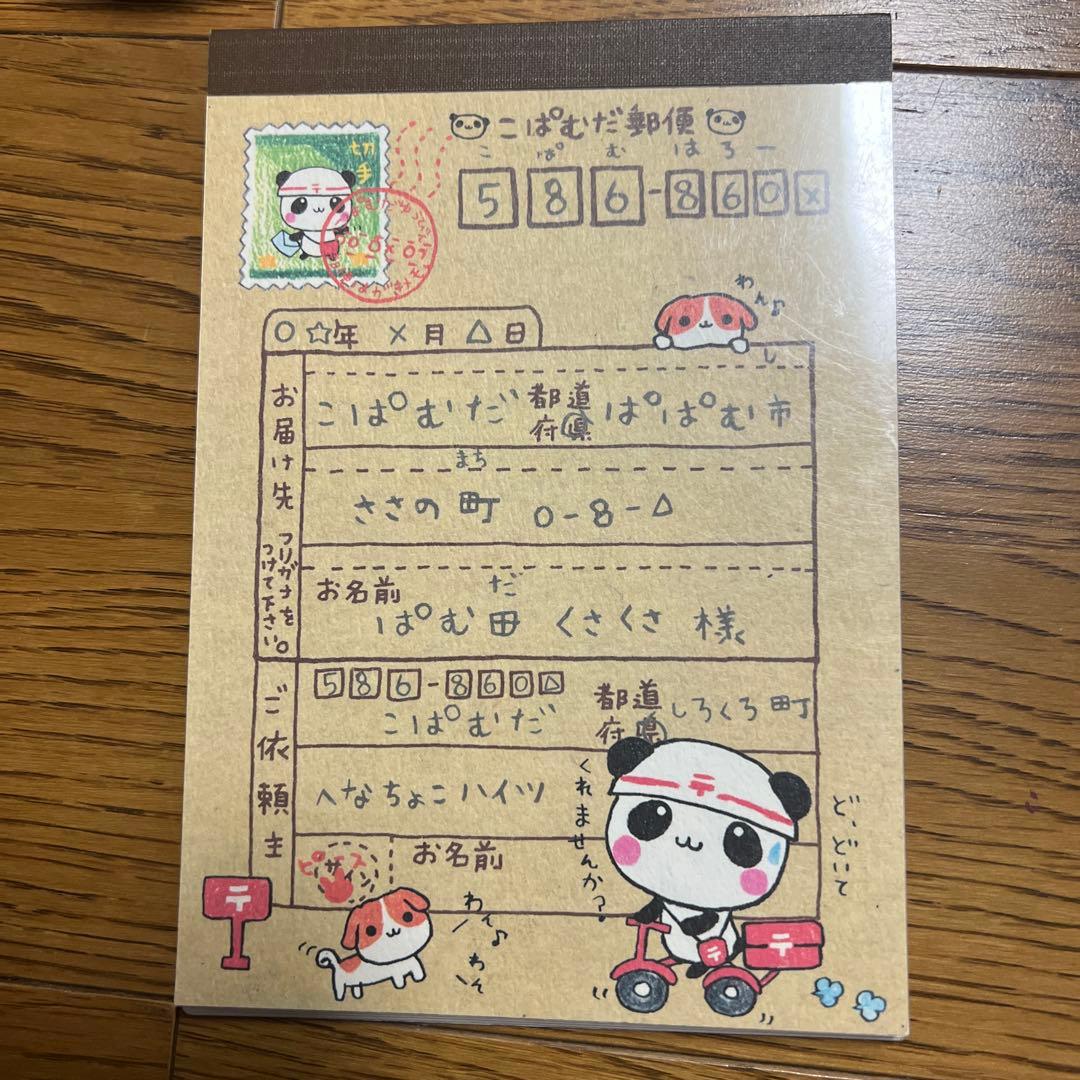 こぱむだ郵便
こ ぱ む は ろ ー
586-860×
切手
わん♪
〇☆年 ×月 △日
し
お届け先
フリガナをつけて下さい。
こぱむだ 都道府県 ぱぱむ市
まち
ささの町 0-8-△
お名前
だ
ぱむ田 くさくさ 様
ご依頼主
586-860△
こぱむだ 都道府県 しろくろ町
へなちょこハイツ
くれませんか?
ど、どいて
ピース
サイン
お名前
〒
〒
〒
〒
〒
わイ♪